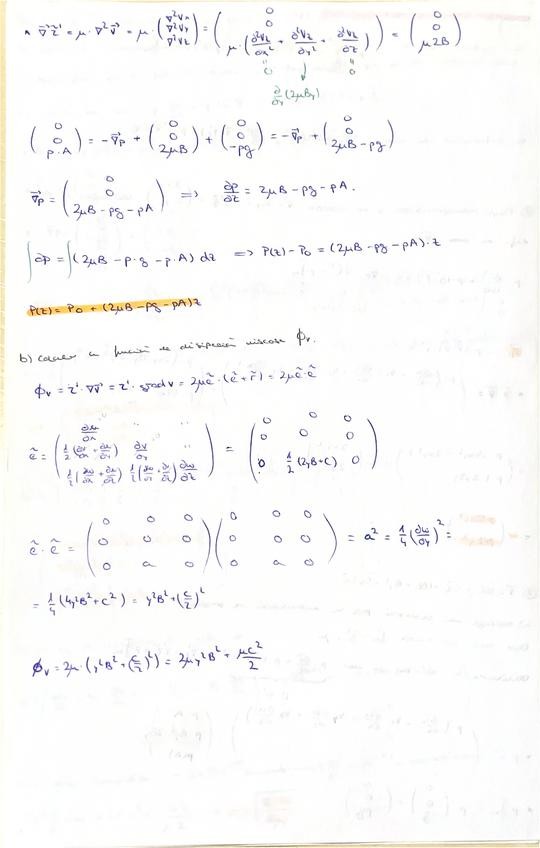 ∇⃗τ⃗' = μ · ∇²v⃗ = μ · (∇²Vx ; ∇²Vy ; ∇²Vz) = (0 ; 0 ; μ · (∂²Vz/∂x² + ∂²Vz/∂y² + ∂²Vz/∂z)) = (0 ; 0 ; μ2B)
0 ↓ 0
∂/∂y (2μBy)
(0 ; 0 ; ρ·A) = -∇⃗p + (0 ; 0 ; 2μB) + (0 ; 0 ; -ρg) = -∇⃗p + (0 ; 0 ; 2μB - ρg)
∇⃗p = (0 ; 0 ; 2μB - ρg - ρA) ⟹ ∂p/∂z = 2μB - ρg - ρA.
∫∂p = ∫(2μB - ρ·g - ρ·A) dz ⟹ P(z) - P₀ = (2μB - ρg - ρA)·z
P(z) = P₀ + (2μB - ρg - ρA)z
b) función de disipación viscosa ϕv.
ϕv = τ' · ∇v⃗ = τ' · grad v = 2μẽ · (ẽ + r̃) = 2μẽ·ẽ
ẽ = (∂u/∂x '' '' ; 1/2(∂v/∂x + ∂u/∂y) ∂v/∂y '' ; 1/2(∂w/∂x + ∂u/∂z) 1/2(∂w/∂y + ∂v/∂z) ∂w/∂z) = (0 0 0 ; 0 0 0 ; 0 1/2(2yB+C) 0)
ẽ · ẽ = (0 0 0 ; 0 0 0 ; 0 a 0)(0 0 0 ; 0 0 0 ; 0 a 0) = a² = 1/4 (∂w/∂y)² =
= 1/4 (4y²B² + C²) = y²B² + (C/2)²
ϕv = 2μ · (y²B² + (C/2)²) = 2μy²B² + μC²/2